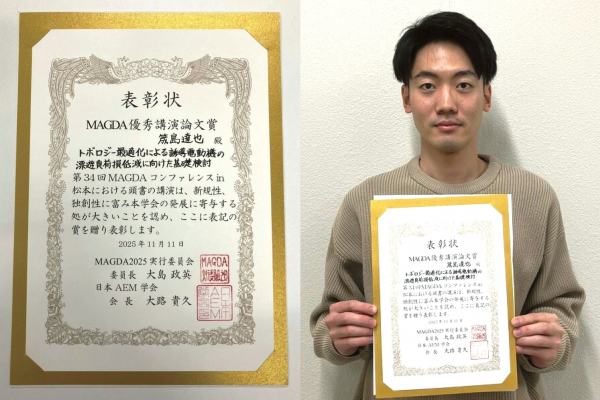 表彰状
MAGDA優秀講演論文賞
荒島達也 殿
トポロジー最適化による誘導電動機の
漂遊負荷損低減に向けた基礎検討
第34回MAGDAコンファレンスin
松本における頭書の講演は、新規性、
独創性に富み本学会の発展に寄与する
処が大きいことを認め、ここに表記の
賞を贈り表彰します。
2025年11月11日
MAGDA2025実行委員会
委員長 大島 政英
日本AEM学会
会長 大路 貴久
MAGDA
表彰状
MAGDA優秀講演論文賞
荒島達也 殿
トポロジー最適化による誘導電動機の
漂遊負荷損低減に向けた基礎検討
第34回MAGDAコンファレンスin
松本における頭書の講演は、新規性、
独創性に富み本学会の発展に寄与する
処が大きいことを認め、ここに表記の
賞を贈り表彰します。
2025年11月11日
MAGDA2025実行委員会
委員長 大島 政英
日本AEM学会
会長 大路 貴久